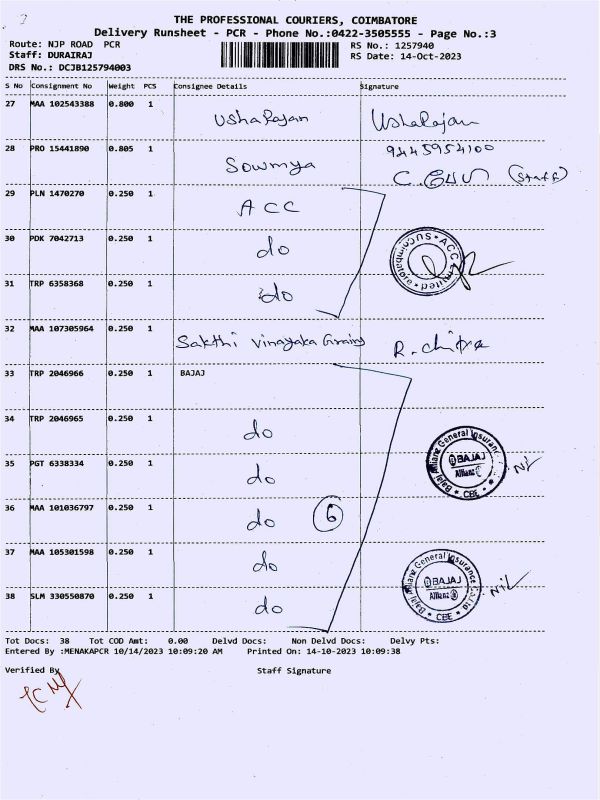 3
THE PROFESSIONAL COURIERS, COIMBATORE
Delivery Runsheet - PCR - Phone No.:0422-3505555 - Page No.:3
Route: NJP ROAD PCR RS No.: 1257940
Staff: DURAIRAJ RS Date: 14-Oct-2023
DRS No.: DCJB125794003
S No Consignment No Weight PCS Consignee Details Signature
27 MAA 102543388 0.800 1 Usha Rajan UshaRajan
28 PRO 15441890 0.805 1 Sowmya 9445954100
C. (Staff)
29 PLN 1470270 0.250 1 ACC
30 PDK 7042713 0.250 1 do
ACC Limited * Coimbatore *
31 TRP 6358368 0.250 1 do
32 MAA 107305964 0.250 1 Sakthi Vinayaka R. chitra
33 TRP 2046966 0.250 1 BAJAJ
34 TRP 2046965 0.250 1 do
Bajaj Allianz General Insurance
35 PGT 6338334 0.250 1 do BAJAJ Allianz Nil
* CBE *
36 MAA 101036797 0.250 1 do 6
37 MAA 105301598 0.250 1 do
Bajaj Allianz General Insurance Co.
38 SLM 330550870 0.250 1 do BAJAJ Allianz Nil
* CBE *
Tot Docs: 38 Tot COD Amt: 0.00 Delvd Docs: Non Delvd Docs: Delvy Pts:
Entered By :MENAKAPCR 10/14/2023 10:09:20 AM Printed On: 14-10-2023 10:09:38
Verified By Staff Signature